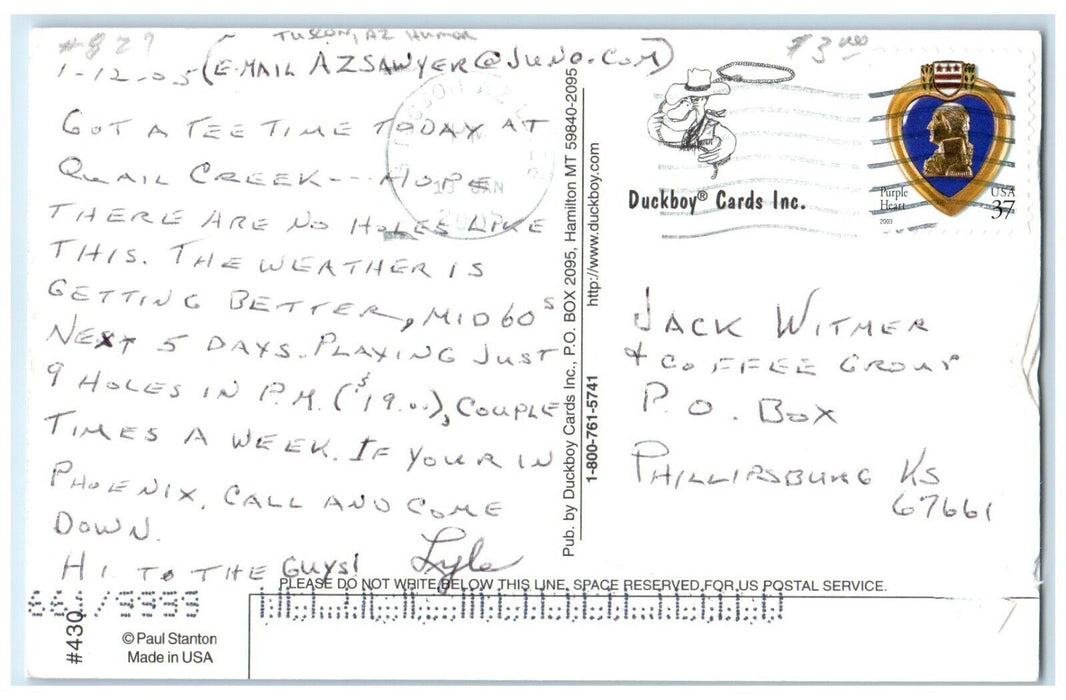 #829
TUSCON, AZ HUMOR
$3.00
1-12-05 (E-MAIL AZSAWYER@JUNO.COM)
GOT A TEE TIME TODAY AT
QUAIL CREEK --- HOPE
THERE ARE NO HOLES LIKE
THIS. THE WEATHER IS
GETTING BETTER, MID 60s
NEXT 5 DAYS. PLAYING JUST
9 HOLES IN P.M. ($19.00), COUPLE
TIMES A WEEK. IF YOUR IN
PHOENIX, CALL AND COME
DOWN.
HI TO THE GUYS!
Lyle
Pub. by Duckboy Cards Inc., P.O. BOX 2095, Hamilton MT 59840-2095
1-800-761-5741 http://www.duckboy.com
Duckboy® Cards Inc.
Purple
Heart
USA
37
2003
JACK WITMER
& COFFEE GROUP
P.O. BOX
PHILLIPSBURG KS
67661
PLEASE DO NOT WRITE BELOW THIS LINE. SPACE RESERVED FOR US POSTAL SERVICE.
#430
© Paul Stanton
Made in USA